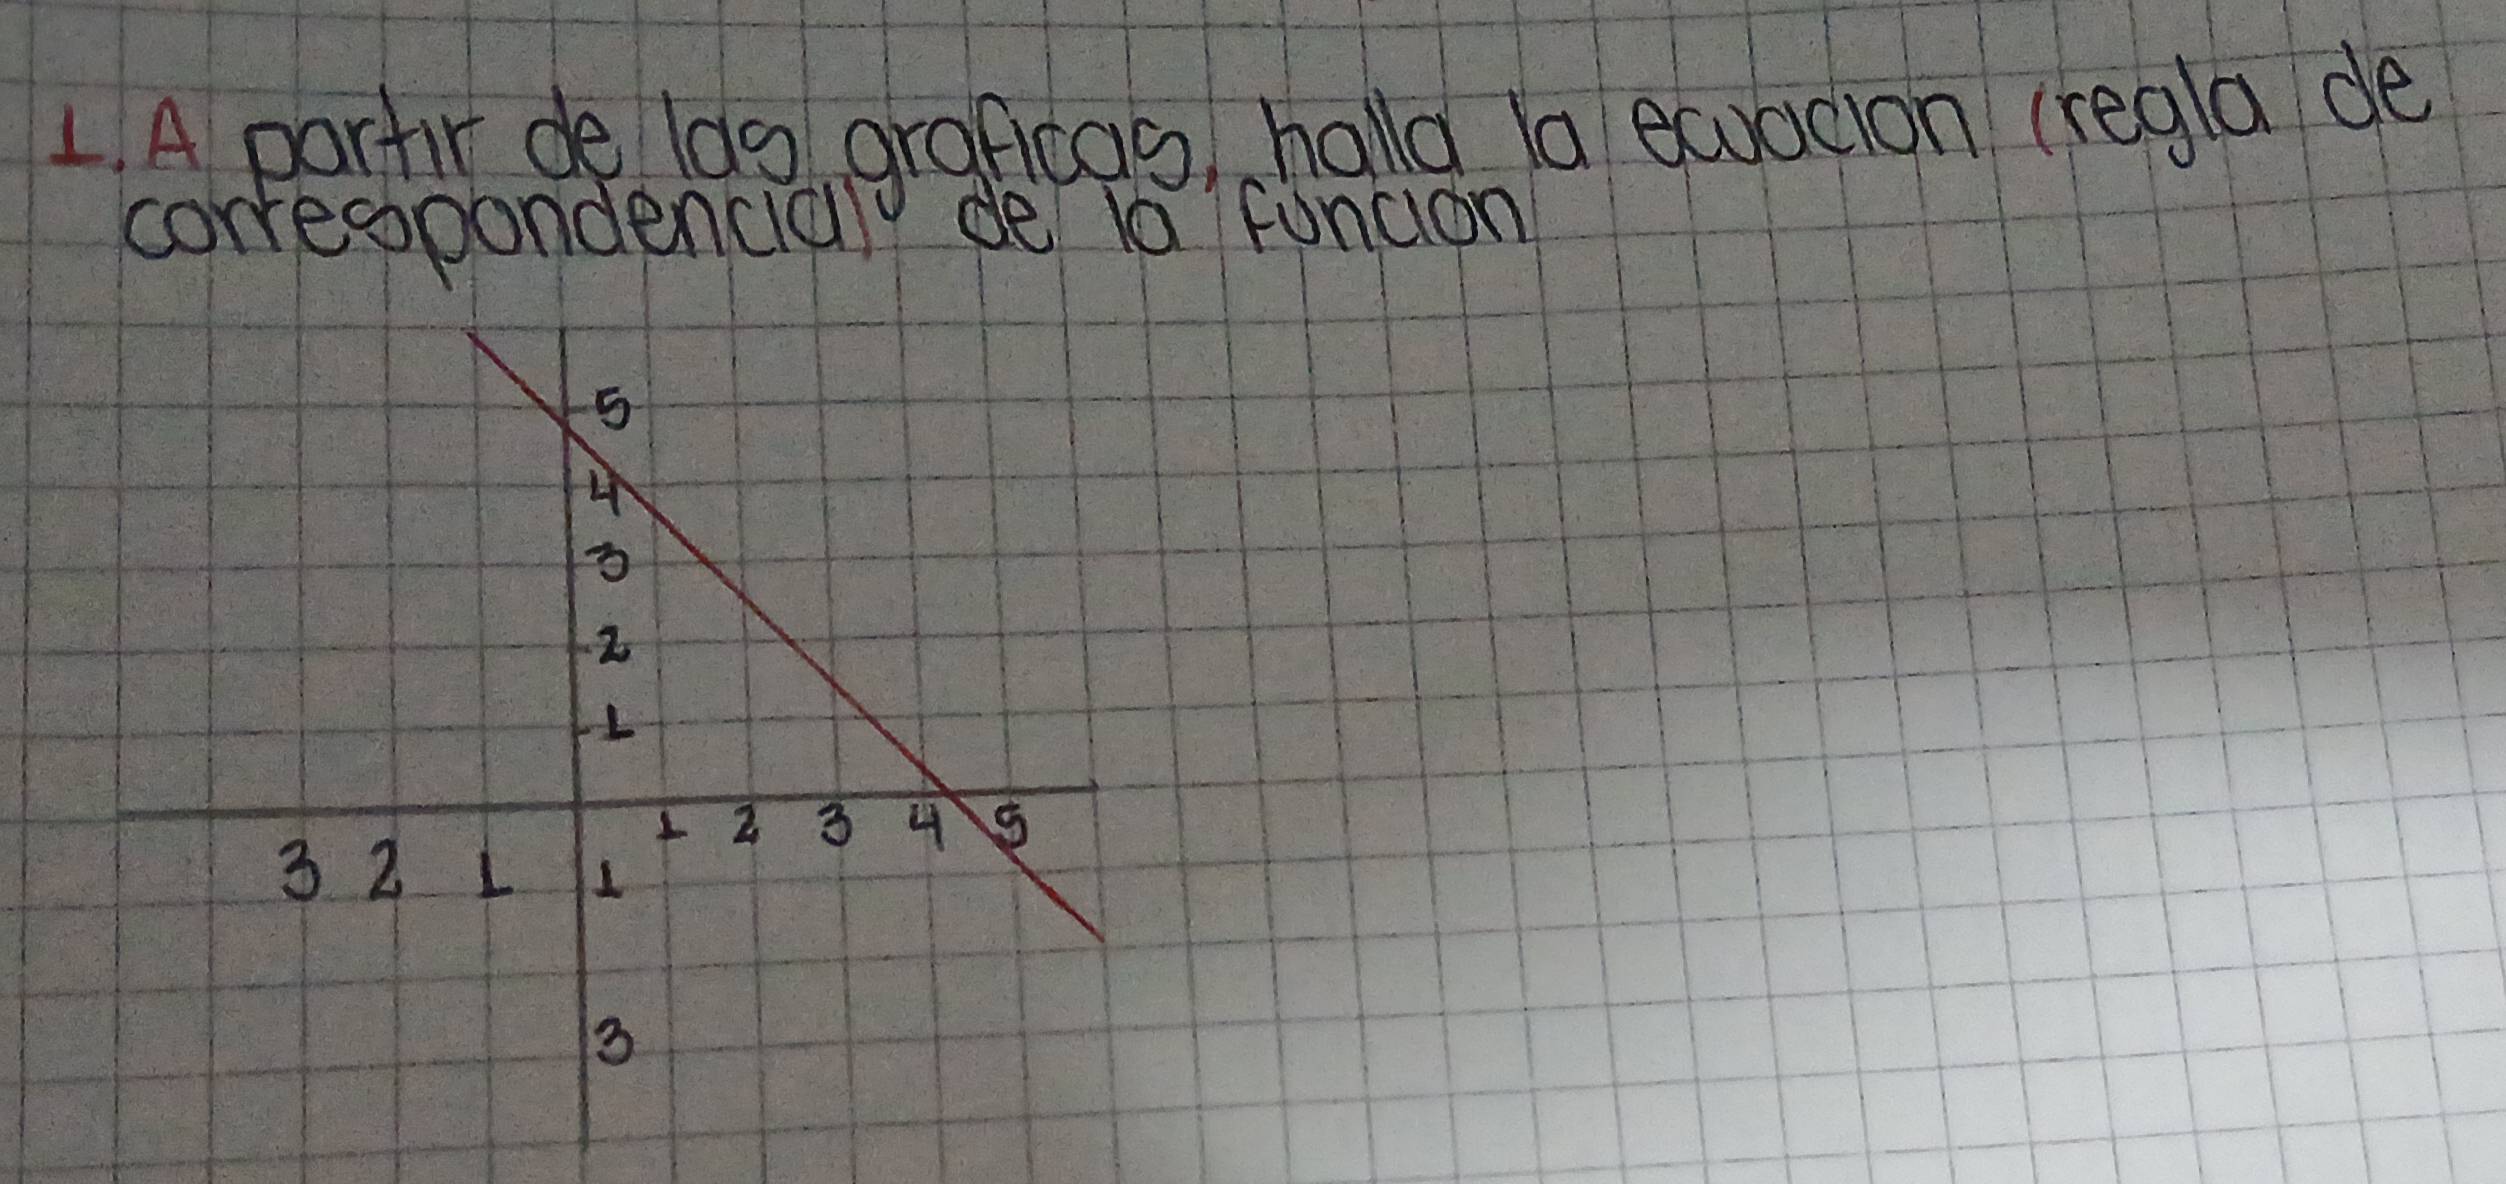 1. A partir de las graficas, halla la ecuacion (regla de
correspondencia) de la función
5
4
3
2
1
1 2 3 4 5
3 2 1 1
3